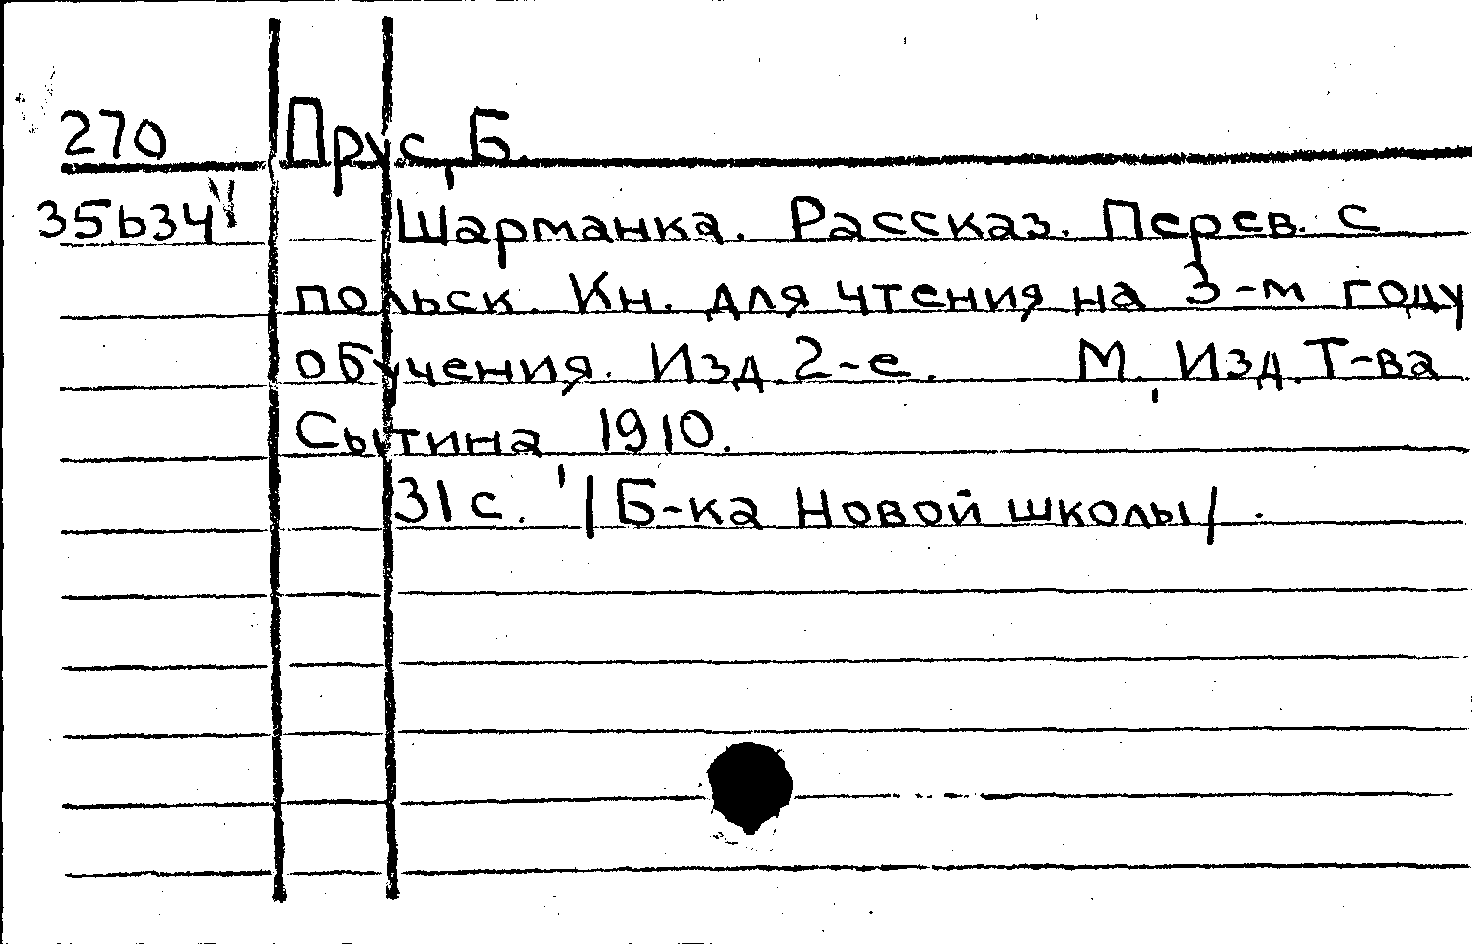 270 Прус, Б.
35б34 Шарманка. Рассказ. Перев. с
польск. Кн. для чтения на 3-м году
обучения. Изд. 2-е. М., Изд. Т-ва
Сытина, 1910.
31 с. /Б-ка Новой школы/.